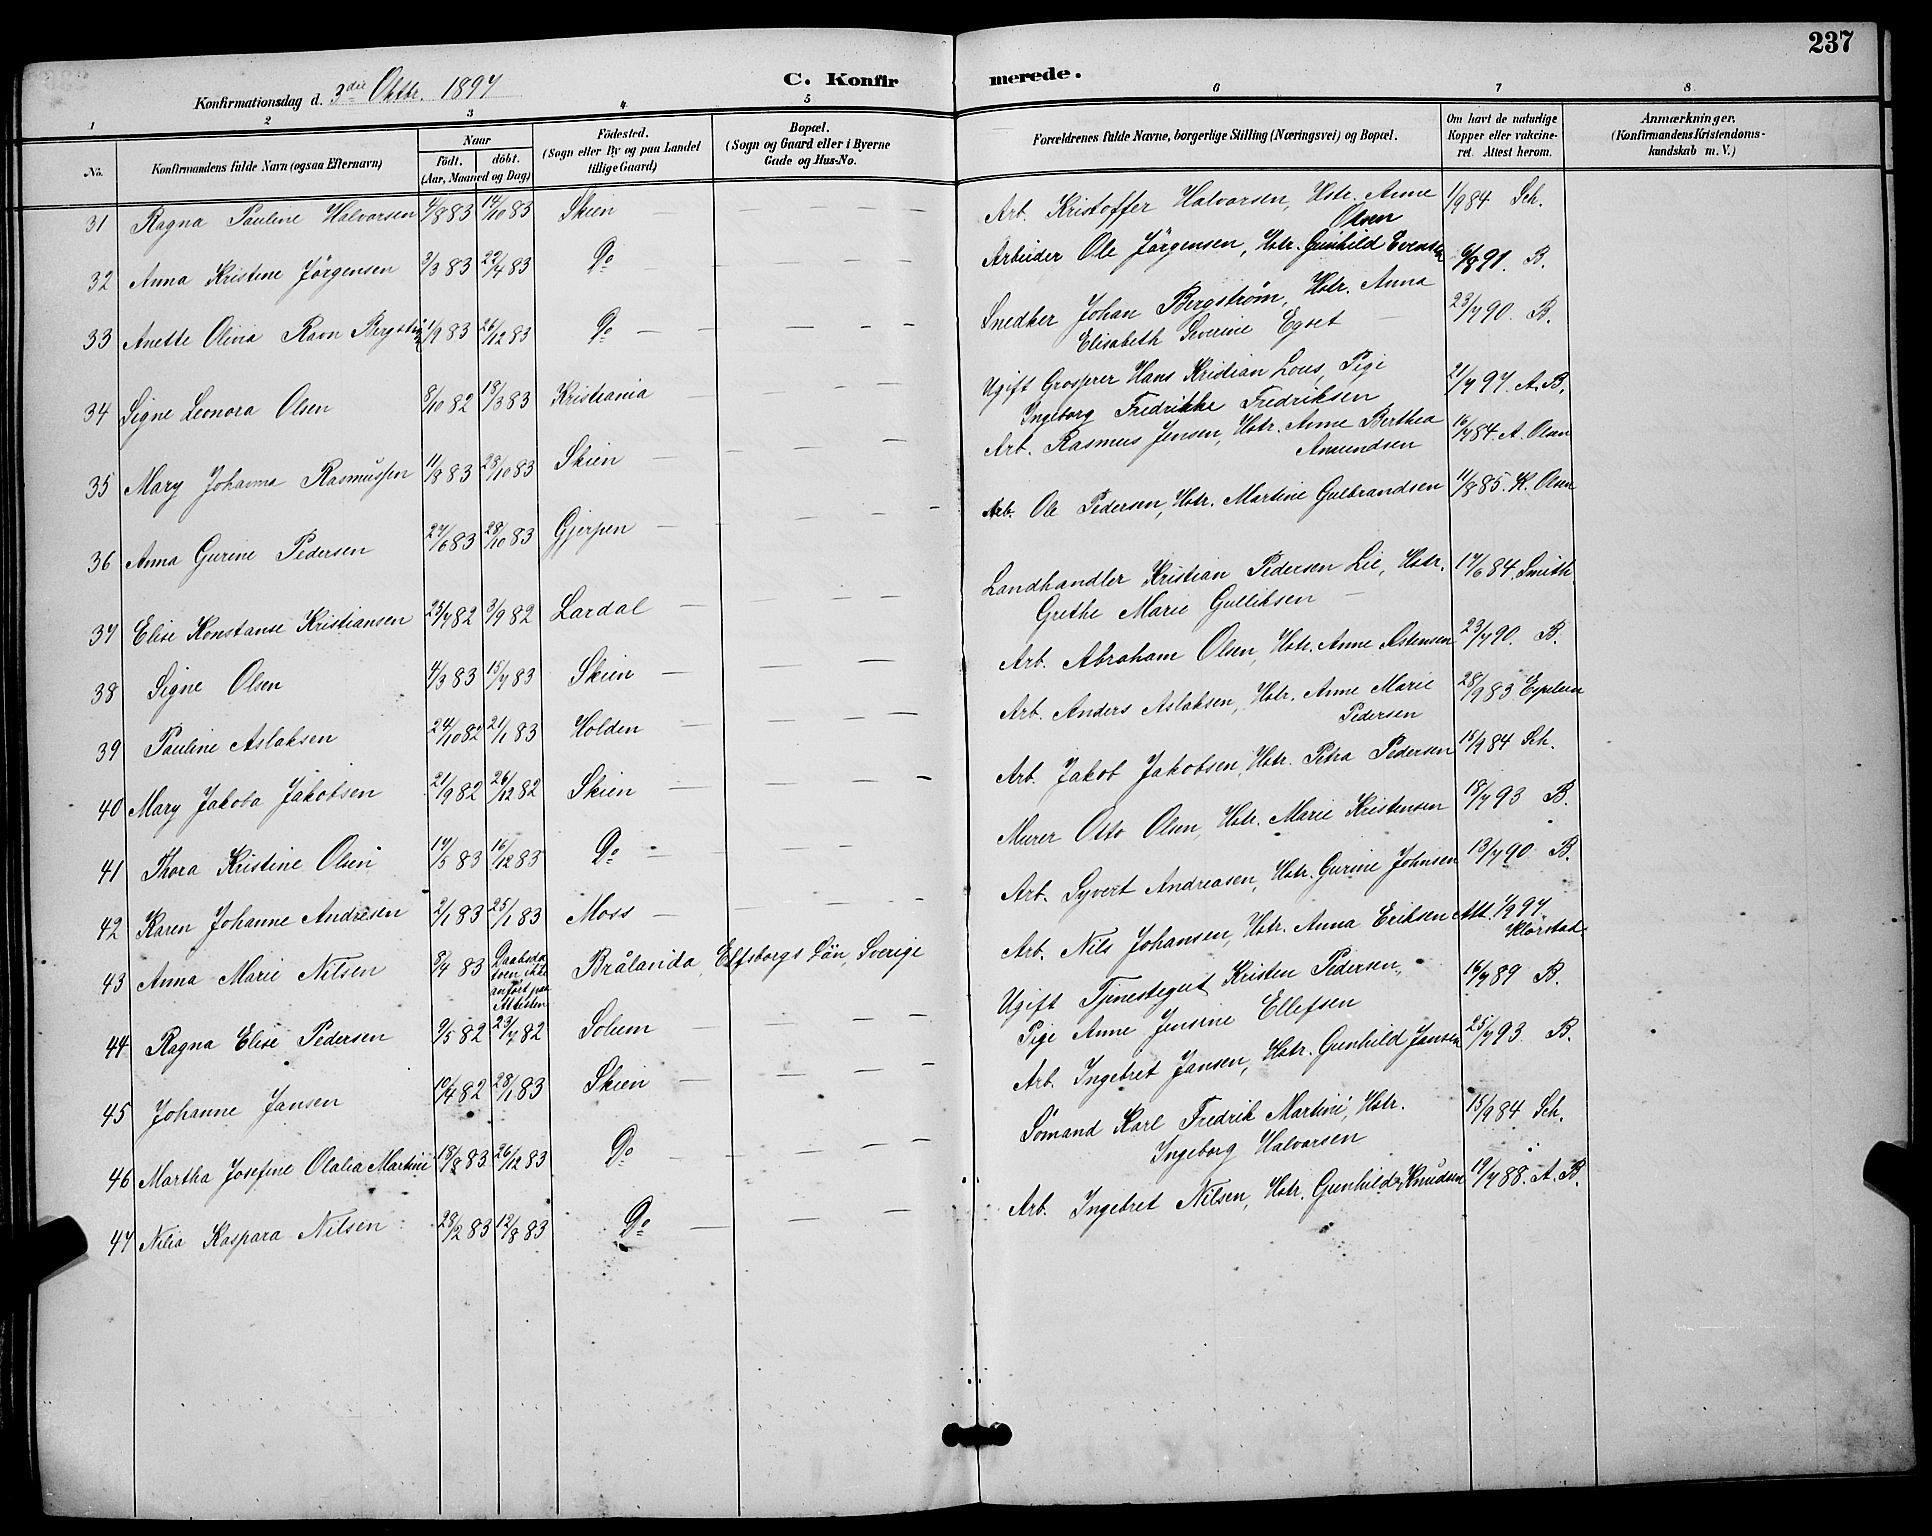 237
Konfirmationsdag d. 3die Oktbr. 1897
C. Konfirmerede.
1 2 3 4 5 6 7 8
No.
Konfirmandens fulde Navn (ogsaa Efternavn)
Naar
födt. döbt.
(Aar, Maaned og Dag)
Födested.
(Sogn eller By og paa Landet
tillige Gaard)
Bopæl.
(Sogn og Gaard eller i Byerne
Gade og Hus-No.
Forældrenes fulde Navne, borgerlige Stilling (Næringsvei) og Bopæl.
Om havt de naturlige
Kopper eller vakcine-
ret. Attest herom.
Anmærkninger.
(Konfirmandens Kristendoms-
kundskab m. V.)
31 Ragna Pauline Halvorsen 4/8 83 14/10 83 Skien — Arb. Kristoffer Halvorsen, Hstr. Anne 1/9 84 Sch.
Olsen
32 Anna Kristine Jörgensen 3/3 83 22/4 83 Do Arbeider Ole Jörgensen, Hstr. Gunhild Evensen 6/8 91. B.
33 Anette Olivia Ravn Bergström 1/9 83 26/12 83 Do — Snedker Johan Bergström, Hstr. Anna 23/7 90. B.
Elisabeth Severine Egset
34 Signe Leonora Olsen 8/10 82 18/3 83 Kristiania — Ugift Grosserer Hans Kristian Lous, Pige 21/7 97. A. B.
Ingeborg Fredrikke Fredriksen
35 Mary Johanna Rasmussen 11/8 83 28/10 83 Skien — Arb. Rasmus Jensen, Hstr. Anne Berthea 16/7 84. A. Olsen
Amundsen
36 Anna Gurine Pedersen 27/6 83 28/10 83 Gjerpen — Arb. Ole Pedersen, Hstr. Martine Gulbrandsen 11/8 85. K. Olsen
37 Elise Konstanse Kristiansen 23/7 82 3/9 82 Lardal — Landhandler Kristian Pedersen Lie, Hstr. 17/6 84. Smith
Grethe Marie Gulliksen
38 Signe Olsen 4/3 83 15/7 83 Skien — Arb. Abraham Olsen, Hstr. Anne Astensen 23/7 90. B.
39 Pauline Aslaksen 24/10 82 21/1 83 Holden — Arb. Anders Aslaksen, Hstr. Anne Marie 28/9 83
Pedersen
40 Mary Jakoba Jakobsen 21/9 82 26/12 82 Skien — Arb. Jakob Jakobsen, Hstr. Petra Pedersen 15/9 84 Sch.
41 Thora Kristine Olsen 14/5 83 16/12 83 Do — Murer Otto Olsen, Hstr. Marie Kristensen 18/7 93 B.
42 Karen Johanne Andresen 2/1 83 25/1 83 Moss — Arb. Syvert Andreasen, Hstr. Gurine Johnsen 13/7 90 B.
43 Anna Marie Nilsen 8/4 83 Daabsda- Brålanda, Elfsborgs Län, Sverige Arb. Nils Johansen, Hstr. Anna Eriksen Att. 1/9 97.
toen ikke
anført paa
Attesten
44 Ragna Elise Pedersen 9/5 82 23/7 82 Solum — Ugift Tjenestegut Kristen Pedersen, 16/7 89 B.
Pige Anne Jensine Ellefsen
45 Johanne Jansen 10/4 82 28/1 83 Skien — Arb. Ingebret Jansen, Hstr. Gunhild Jansen 25/7 93 B.
46 Martha Josefine Olalia Martini 18/8 83 26/12 83 Do — Sömand Karl Fredrik Martini, Hstr. 15/9 84 Sch.
Ingeborg Halvorsen
47 Nilia Kaspara Nilsen 28/2 83 12/8 83 Do — Arb. Ingebret Nilsen, Hstr. Gunhild Knudsen 19/7 88. A. B.